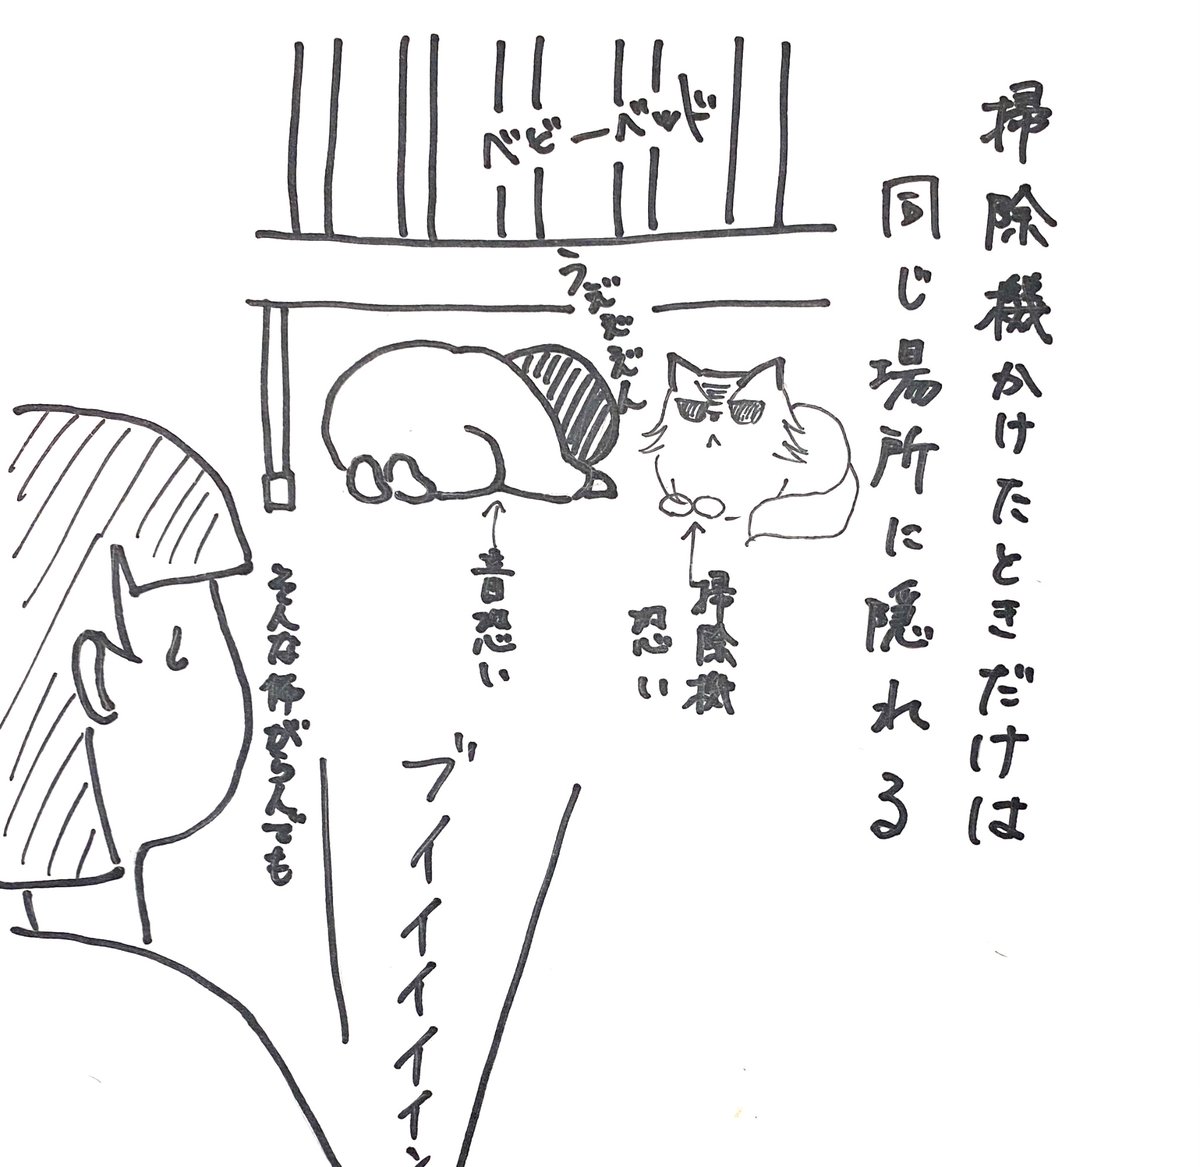 掃除機かけたときだけは
同じ場所に隠れる
ベビーベッド
掃除機
恐い
音恐い
そんな怖がらんでも
ブイイイイイン